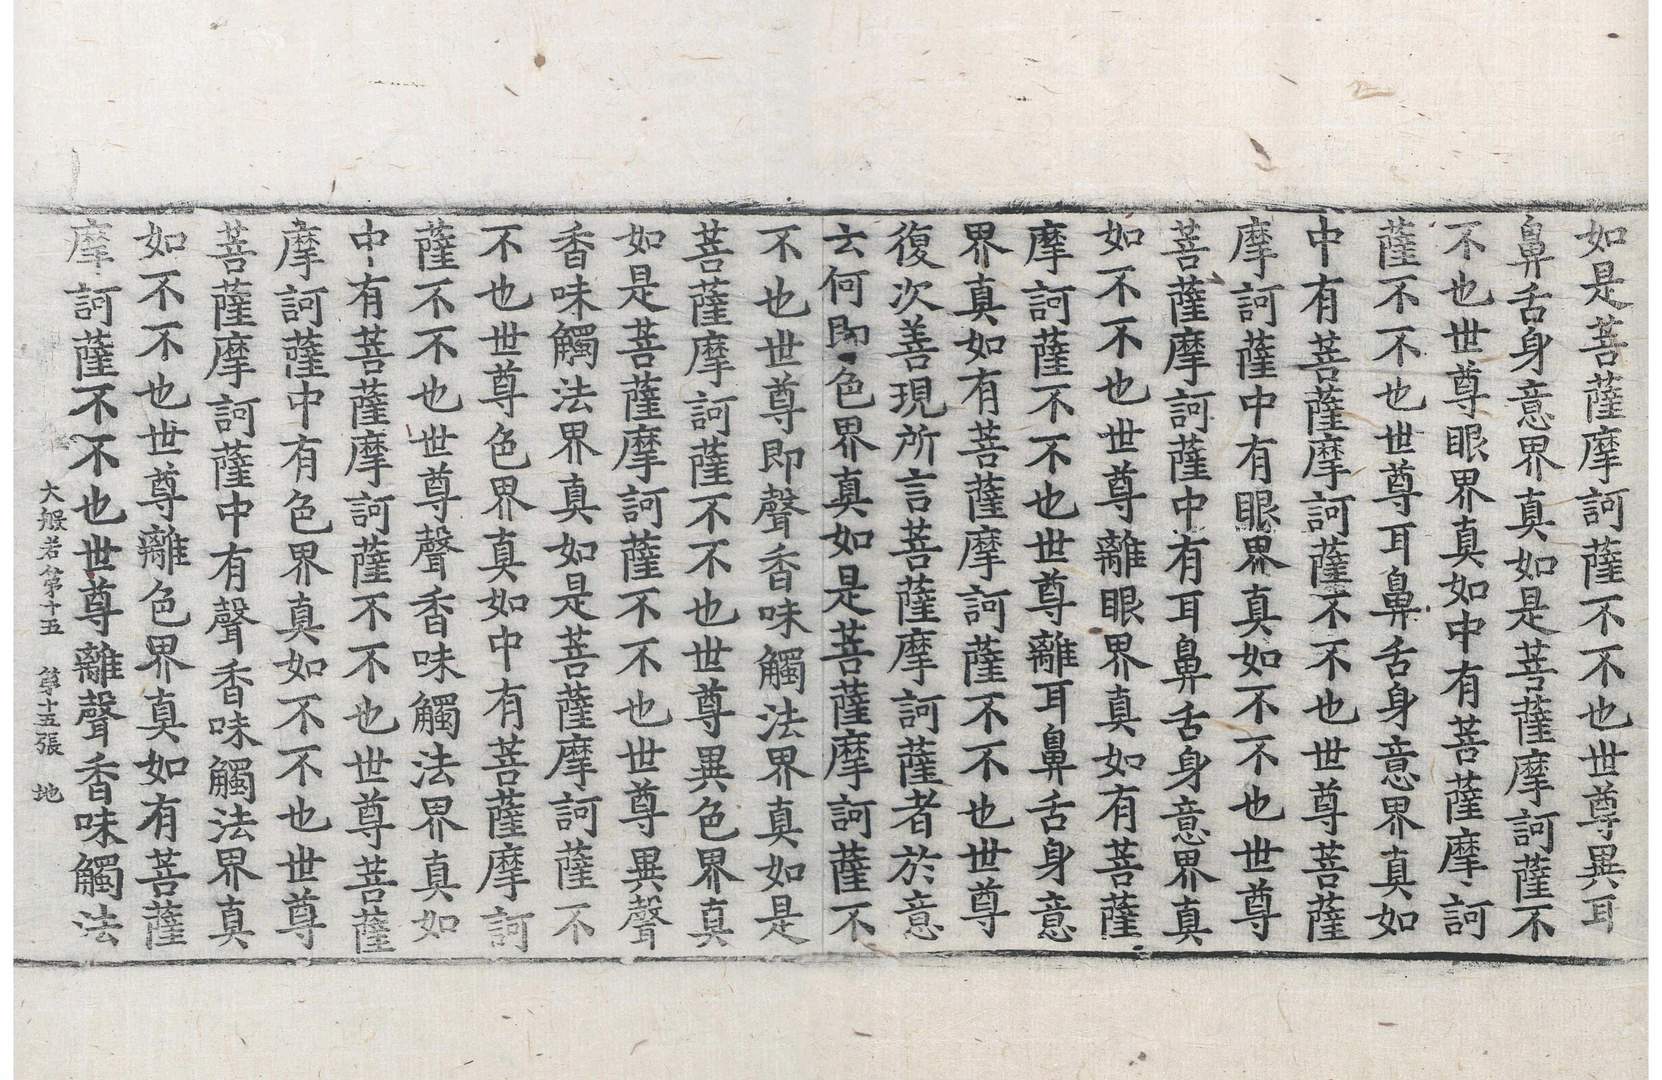 如是菩薩摩訶薩不不也世尊異耳
鼻舌身意界真如是菩薩摩訶薩不
不也世尊眼界真如中有菩薩摩訶
薩不不也世尊耳鼻舌身意界真如
中有菩薩摩訶薩不不也世尊菩薩
摩訶薩中有眼界真如不不也世尊
菩薩摩訶薩中有耳鼻舌身意界真
如不不也世尊離眼界真如有菩薩
摩訶薩不不也世尊離耳鼻舌身意
界真如有菩薩摩訶薩不不也世尊
復次善現所言菩薩摩訶薩者於意
云何即色界真如是菩薩摩訶薩不
不也世尊即聲香味觸法界真如是
菩薩摩訶薩不不也世尊異色界真
如是菩薩摩訶薩不不也世尊異聲
香味觸法界真如是菩薩摩訶薩不
不也世尊色界真如中有菩薩摩訶
薩不不也世尊聲香味觸法界真如
中有菩薩摩訶薩不不也世尊菩薩
摩訶薩中有色界真如不不也世尊
菩薩摩訶薩中有聲香味觸法界真
如不不也世尊離色界真如有菩薩
摩訶薩不不也世尊離聲香味觸法
大般若第十五 第十五張 地